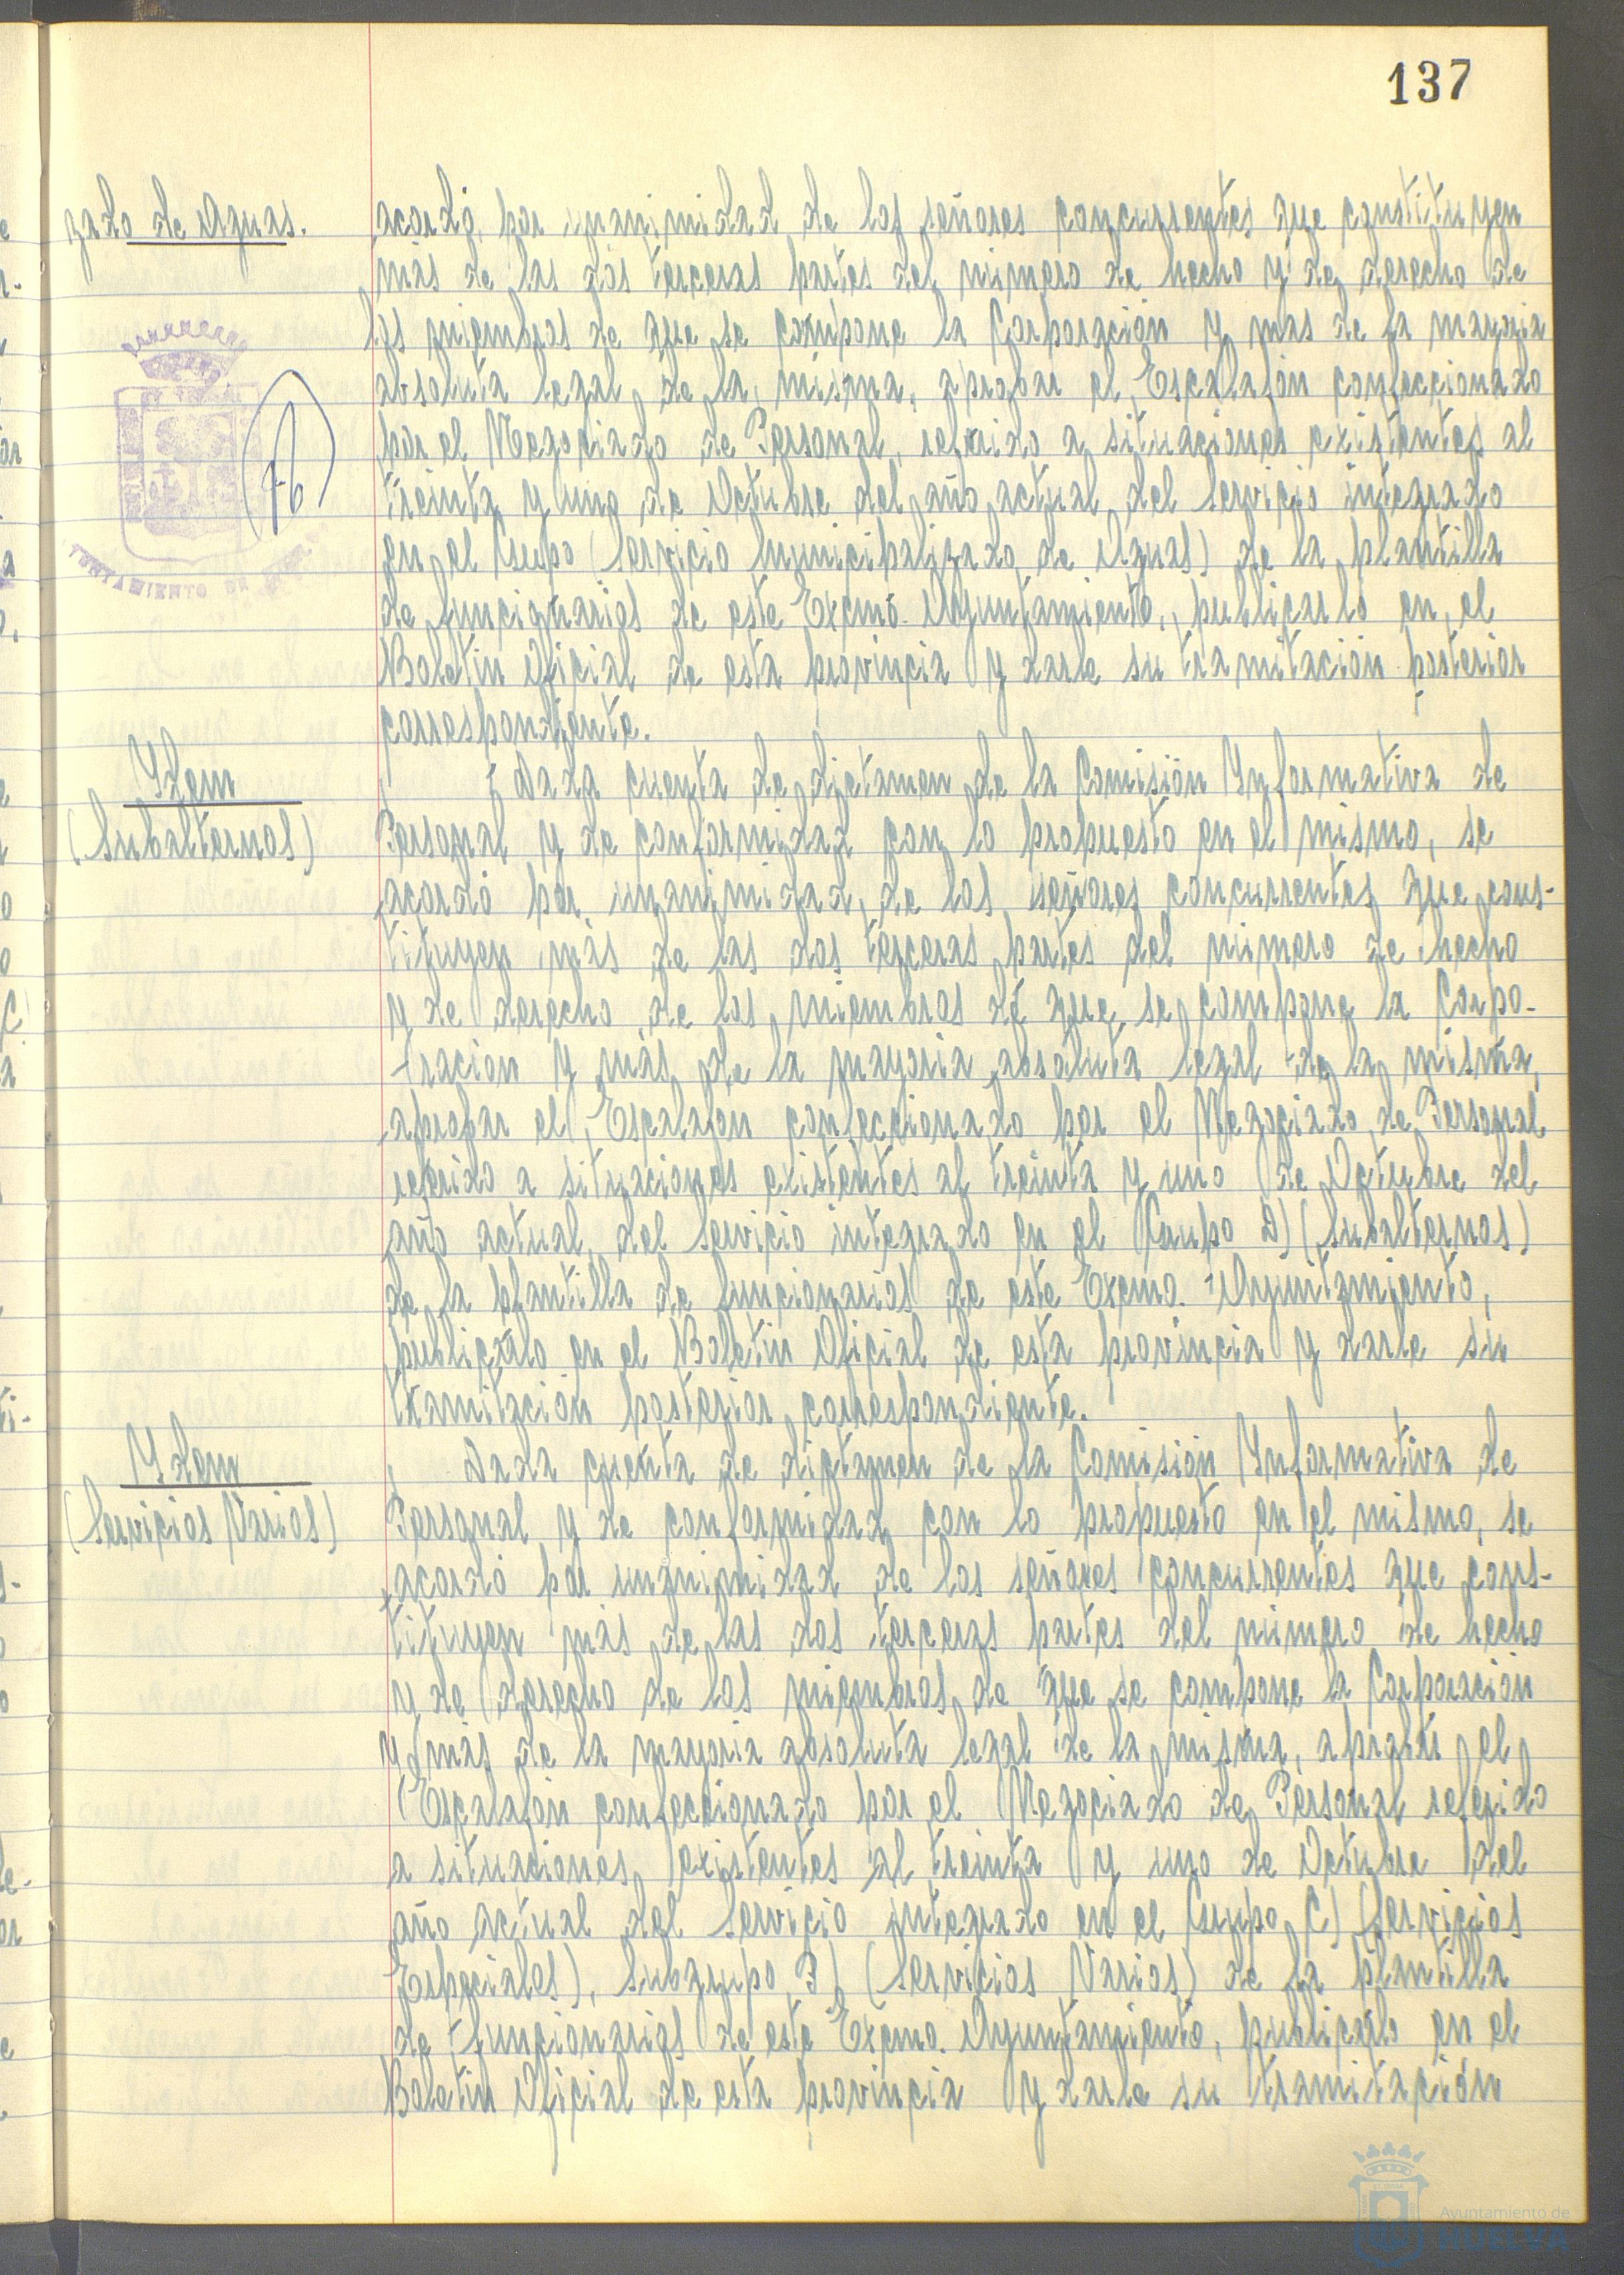 137
zado de Aguas.
acordó, por unanimidad de los señores concurrentes que constituyen
más de las dos terceras partes del número de hecho y de derecho de
los miembros de que se compone la Corporación y mas de la mayoria
absoluta legal de la misma, aprobar el Escalafón confeccionado
por el Negociado de Personal, referido a situaciones existentes al
treinta y uno de Octubre del año actual del Servicio integrado
en el Grupo (Servicio Municipalizado de Aguas) de la plantilla
de funcionarios de este Excmo. Ayuntamiento, publicarlo en el
Boletin Oficial de esta provincia y darle su tramitación posterior
correspondiente.
AYUNTAMIENTO DE
Ydem
(Subalternos)
Dada cuenta de dictamen de la Comisión Ynformativa de
Personal y de conformidad con lo propuesto en el mismo, se
acordó por unanimidad, de los señores concurrentes que cons-
tituyen más de las dos terceras partes del número de hecho
y de derecho de los miembros de que se compone la Corpo-
ración y más de la mayoria absoluta legal de la misma,
aprobar el Escalafón confeccionado por el Negociado de Personal
referido a situaciones existentes al treinta y uno de Octubre del
año actual, del Servicio integrado en el Grupo D) (Subalternos)
de la plantilla de funcionarios de este Excmo. Ayuntamiento,
publicarlo en el Boletin Oficial de esta provincia y darle su
tramitación posterior correspondiente.
Ydem
(Servicios Varios)
Dada cuenta de dictamen de la Comisión Ynformativa de
Personal y de conformidad con lo propuesto en el mismo, se
acordó por unanimidad de los señores concurrentes que cons-
tituyen más de las dos terceras partes del número de hecho
y de derecho de los miembros de que se compone la Corporación
y más de la mayoria absoluta legal de la misma, aprobar el
Escalafón confeccionado por el Negociado de Personal referido
a situaciones existentes al treinta y uno de Octubre del
año actual del Servicio integrado en el Grupo C) (Servicios
Especiales), Subgrupo 3) (Servicios Varios) de la plantilla
de funcionarios de este Excmo. Ayuntamiento, publicarlo en el
Boletin Oficial de esta provincia y darle su tramitación
Ayuntamiento de
HUELVA